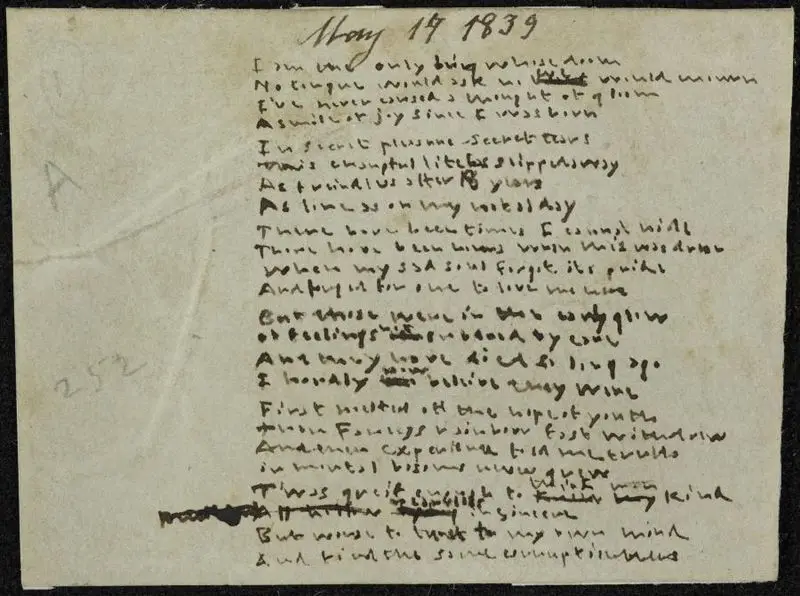 May 17 1839
I am the only being whose doom
No tongue would ask no eye would mourn
I've never caused a thought of gloom
A smile of joy since I was born
In secret pleasure - secret tears
This changful life has slipped away
As freindless after 18 years
As lone as on my natal day
There have been times I cannot hide
There have been times when this was drear
When my sad soul forgot its pride
And longed for one to love me here
But those were in the early glow
of feelings since subdued by care
And they have died so long ago
I hardly now believe they were
First melted off the hope of youth
Then Fancys rainbow fast withdrew
And then experience told me truth
in mortal bosoms never grew
Twas greif enough to think man kind
All hollow servile insincere
But worse to trust to my own mind
And find the same corruption there
A
252